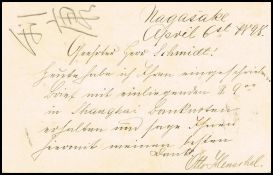 Nagasaki
April 6st 1898.
Geehrter Herr Schmidt!
Heute habe ich Ihren eingeschrieb.
Brief mit einliegenden $ 9.00
in Shanghai Banknoten
erhalten und sage Ihnen
hiermit meinen besten
Dank
Otto Henschel.